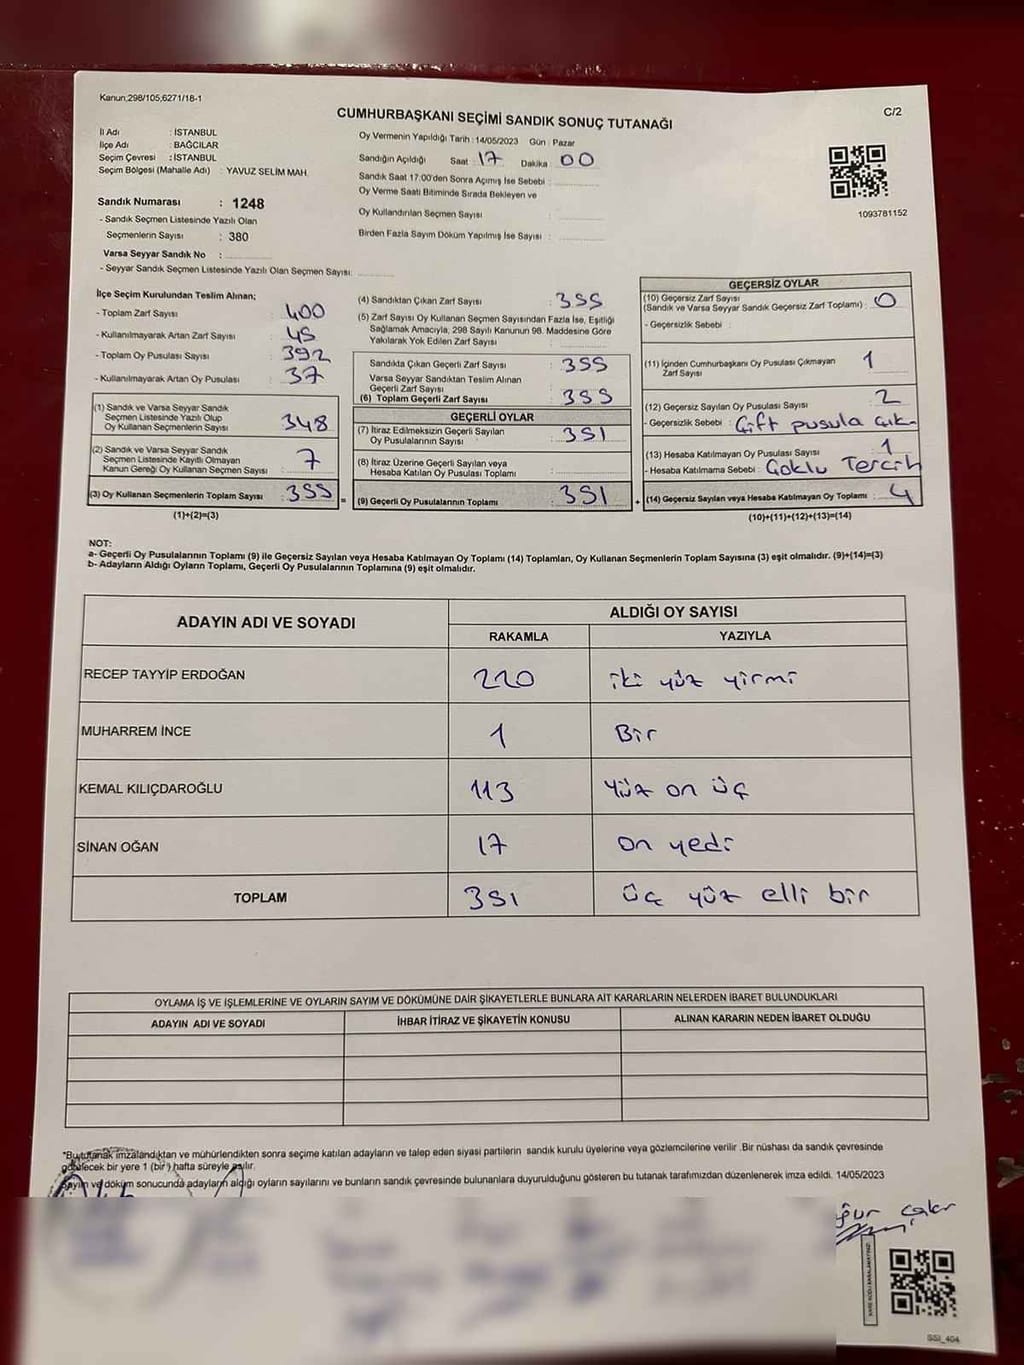 Kanun,298/105,6271/18-1
C/2
CUMHURBAŞKANI SEÇİMİ SANDIK SONUÇ TUTANAĞI
İl Adı : İSTANBUL
İlçe Adı : BAĞCILAR
Seçim Çevresi : İSTANBUL
Seçim Bölgesi (Mahalle Adı) : YAVUZ SELİM MAH.
Sandık Numarası : 1248
- Sandık Seçmen Listesinde Yazılı Olan
Seçmenlerin Sayısı : 380
Varsa Seyyar Sandık No :
- Seyyar Sandık Seçmen Listesinde Yazılı Olan Seçmen Sayısı:
Oy Vermenin Yapıldığı Tarih : 14/05/2023 Gün : Pazar
Sandığın Açıldığı Saat : 17 Dakika : 00
Sandık Saat 17:00'den Sonra Açımış İse Sebebi :
Oy Verme Saati Bitiminde Sırada Bekleyen ve
Oy Kullandırılan Seçmen Sayısı :
Birden Fazla Sayım Döküm Yapılmış İse Sayısı :
1093781152
İlçe Seçim Kurulundan Teslim Alınan;
- Toplam Zarf Sayısı : 400
- Kullanılmayarak Artan Zarf Sayısı : 45
- Toplam Oy Pusulası Sayısı : 392
- Kullanılmayarak Artan Oy Pusulası : 37
(1) Sandık ve Varsa Seyyar Sandık
Seçmen Listesinde Yazılı Olup
Oy Kullanan Seçmenlerin Sayısı : 348
(2) Sandık ve Varsa Seyyar Sandık
Seçmen Listesinde Kayıtlı Olmayan
Kanun Gereği Oy Kullanan Seçmen Sayısı : 7
(3) Oy Kullanan Seçmenlerin Toplam Sayısı : 355 =
(1)+(2)=(3)
(4) Sandıktan Çıkan Zarf Sayısı : 355
(5) Zarf Sayısı Oy Kullanan Seçmen Sayısından Fazla İse, Eşitliği
Sağlamak Amacıyla, 298 Sayılı Kanunun 98. Maddesine Göre
Yakılarak Yok Edilen Zarf Sayısı :
Sandıkta Çıkan Geçerli Zarf Sayısı : 355
Varsa Seyyar Sandıktan Teslim Alınan
Geçerli Zarf Sayısı :
(6) Toplam Geçerli Zarf Sayısı : 355
GEÇERLİ OYLAR
(7) İtiraz Edilmeksizin Geçerli Sayılan
Oy Pusulalarının Sayısı : 351
(8) İtiraz Üzerine Geçerli Sayılan veya
Hesaba Katılan Oy Pusulası Toplamı :
(9) Geçerli Oy Pusulalarının Toplamı : 351 +
GEÇERSİZ OYLAR
(10) Geçersiz Zarf Sayısı
(Sandık ve Varsa Seyyar Sandık Geçersiz Zarf Toplamı) : 0
- Geçersizlik Sebebi :
(11) İçinden Cumhurbaşkanı Oy Pusulası Çıkmayan
Zarf Sayısı : 1
(12) Geçersiz Sayılan Oy Pusulası Sayısı : 2
- Geçersizlik Sebebi : Çift pusula çık.
(13) Hesaba Katılmayan Oy Pusulası Sayısı : 1
- Hesaba Katılmama Sebebi : Çoklu Tercih
(14) Geçersiz Sayılan veya Hesaba Katılmayan Oy Toplamı : 4
(10)+(11)+(12)+(13)=(14)
NOT:
a- Geçerli Oy Pusulalarının Toplamı (9) ile Geçersiz Sayılan veya Hesaba Katılmayan Oy Toplamı (14) Toplamları, Oy Kullanan Seçmenlerin Toplam Sayısına (3) eşit olmalıdır. (9)+(14)=(3)
b- Adayların Aldığı Oyların Toplamı, Geçerli Oy Pusulalarının Toplamına (9) eşit olmalıdır.
ADAYIN ADI VE SOYADI
ALDIĞI OY SAYISI
RAKAMLA YAZIYLA
RECEP TAYYİP ERDOĞAN 220 iki yüz yirmi
MUHARREM İNCE 1 Bir
KEMAL KILIÇDAROĞLU 113 Yüz on üç
SİNAN OĞAN 17 on yedi
TOPLAM 351 üç yüz elli bir
OYLAMA İŞ VE İŞLEMLERİNE VE OYLARIN SAYIM VE DÖKÜMÜNE DAİR ŞİKAYETLERLE BUNLARA AİT KARARLARIN NELERDEN İBARET BULUNDUKLARI
ADAYIN ADI VE SOYADI İHBAR İTİRAZ VE ŞİKAYETİN KONUSU ALINAN KARARIN NEDEN İBARET OLDUĞU
*Bu tutanak imzalandıktan ve mühürlendikten sonra seçime katılan adayların ve talep eden siyasi partilerin sandık kurulu üyelerine veya gözlemcilerine verilir .Bir nüshası da sandık çevresinde
görülecek bir yere 1 (bir) hafta süreyle asılır.
Sayım ve döküm sonucunda adayların aldığı oyların sayılarını ve bunların sandık çevresinde bulunanlara duyurulduğunu gösteren bu tutanak tarafımızdan düzenlenerek imza edildi. 14/05/2023
SSI_404